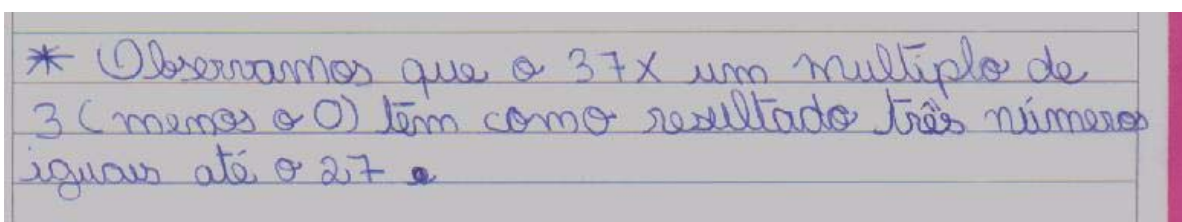 * Observamos que o 37x um multiplo de
3 (menos o 0) têm como resultado três números
iguais até o 27.